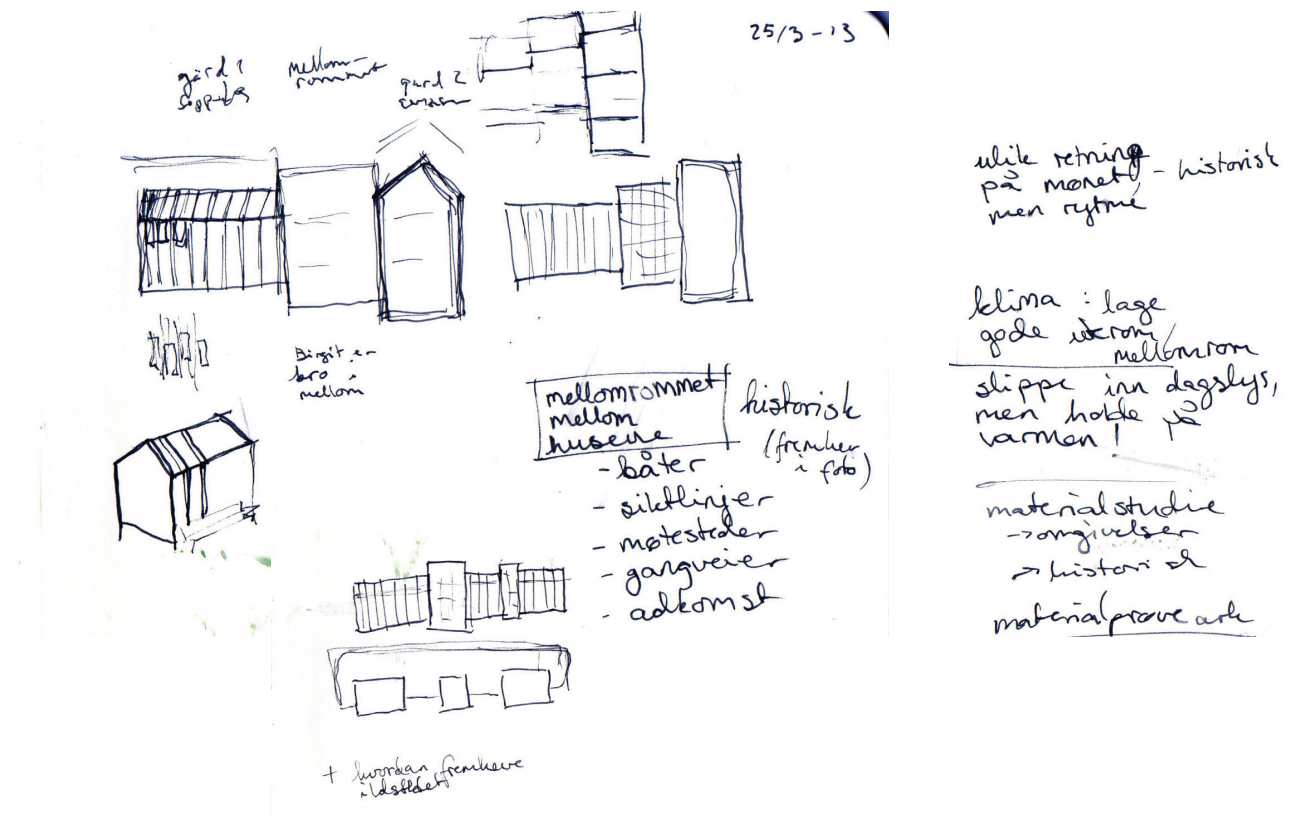 25/3-13
gård 1
mellom-
rommet
gård 2
Birgit er
bro i
mellom
mellomrommet
mellom
husene
historisk
(fremhev
i foto)
- båter
- siktlinjer
- møtesteder
- gangveier
- adkomst
+ hvordan fremheve
ildstedet
ulik retning
på mønet - historisk
men rytme
klima : lage
gode uterom/
mellomrom
slippe inn dagslys,
men holde på
varmen!
materialstudie
-> omgivelser
-> historisk
materialprøve ark